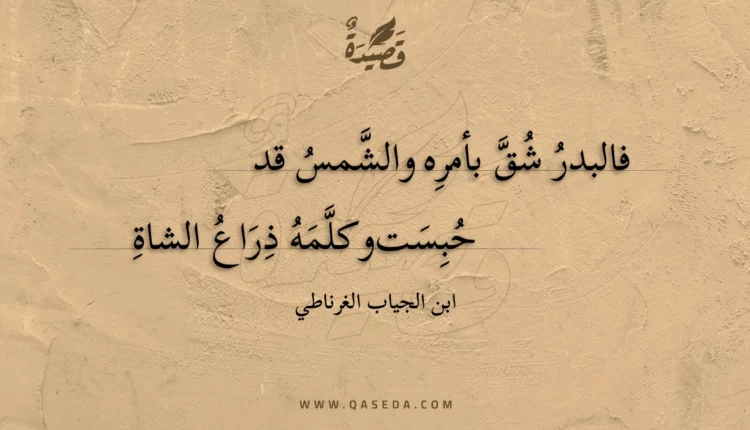 قَصِيدَةٌ
فالبدرُ شُقَّ بأمرِه والشَّمسُ قد
حُبِسَت وكلَّمَهُ ذِرَاعُ الشاةِ
ابن الجياب الغرناطي
WWW.QASEDA.COM